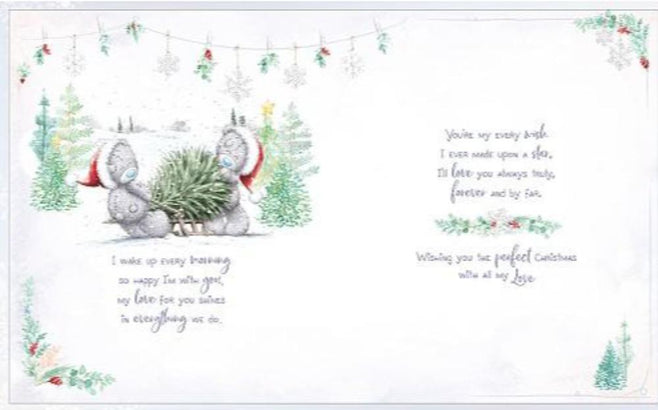 I wake up every morning
so happy I'm with you,
my love for you shines
in everything we do.
You're my every wish
I ever made upon a star,
I'll love you always truly,
forever and by far.
Wishing you the perfect Christmas
with all my Love